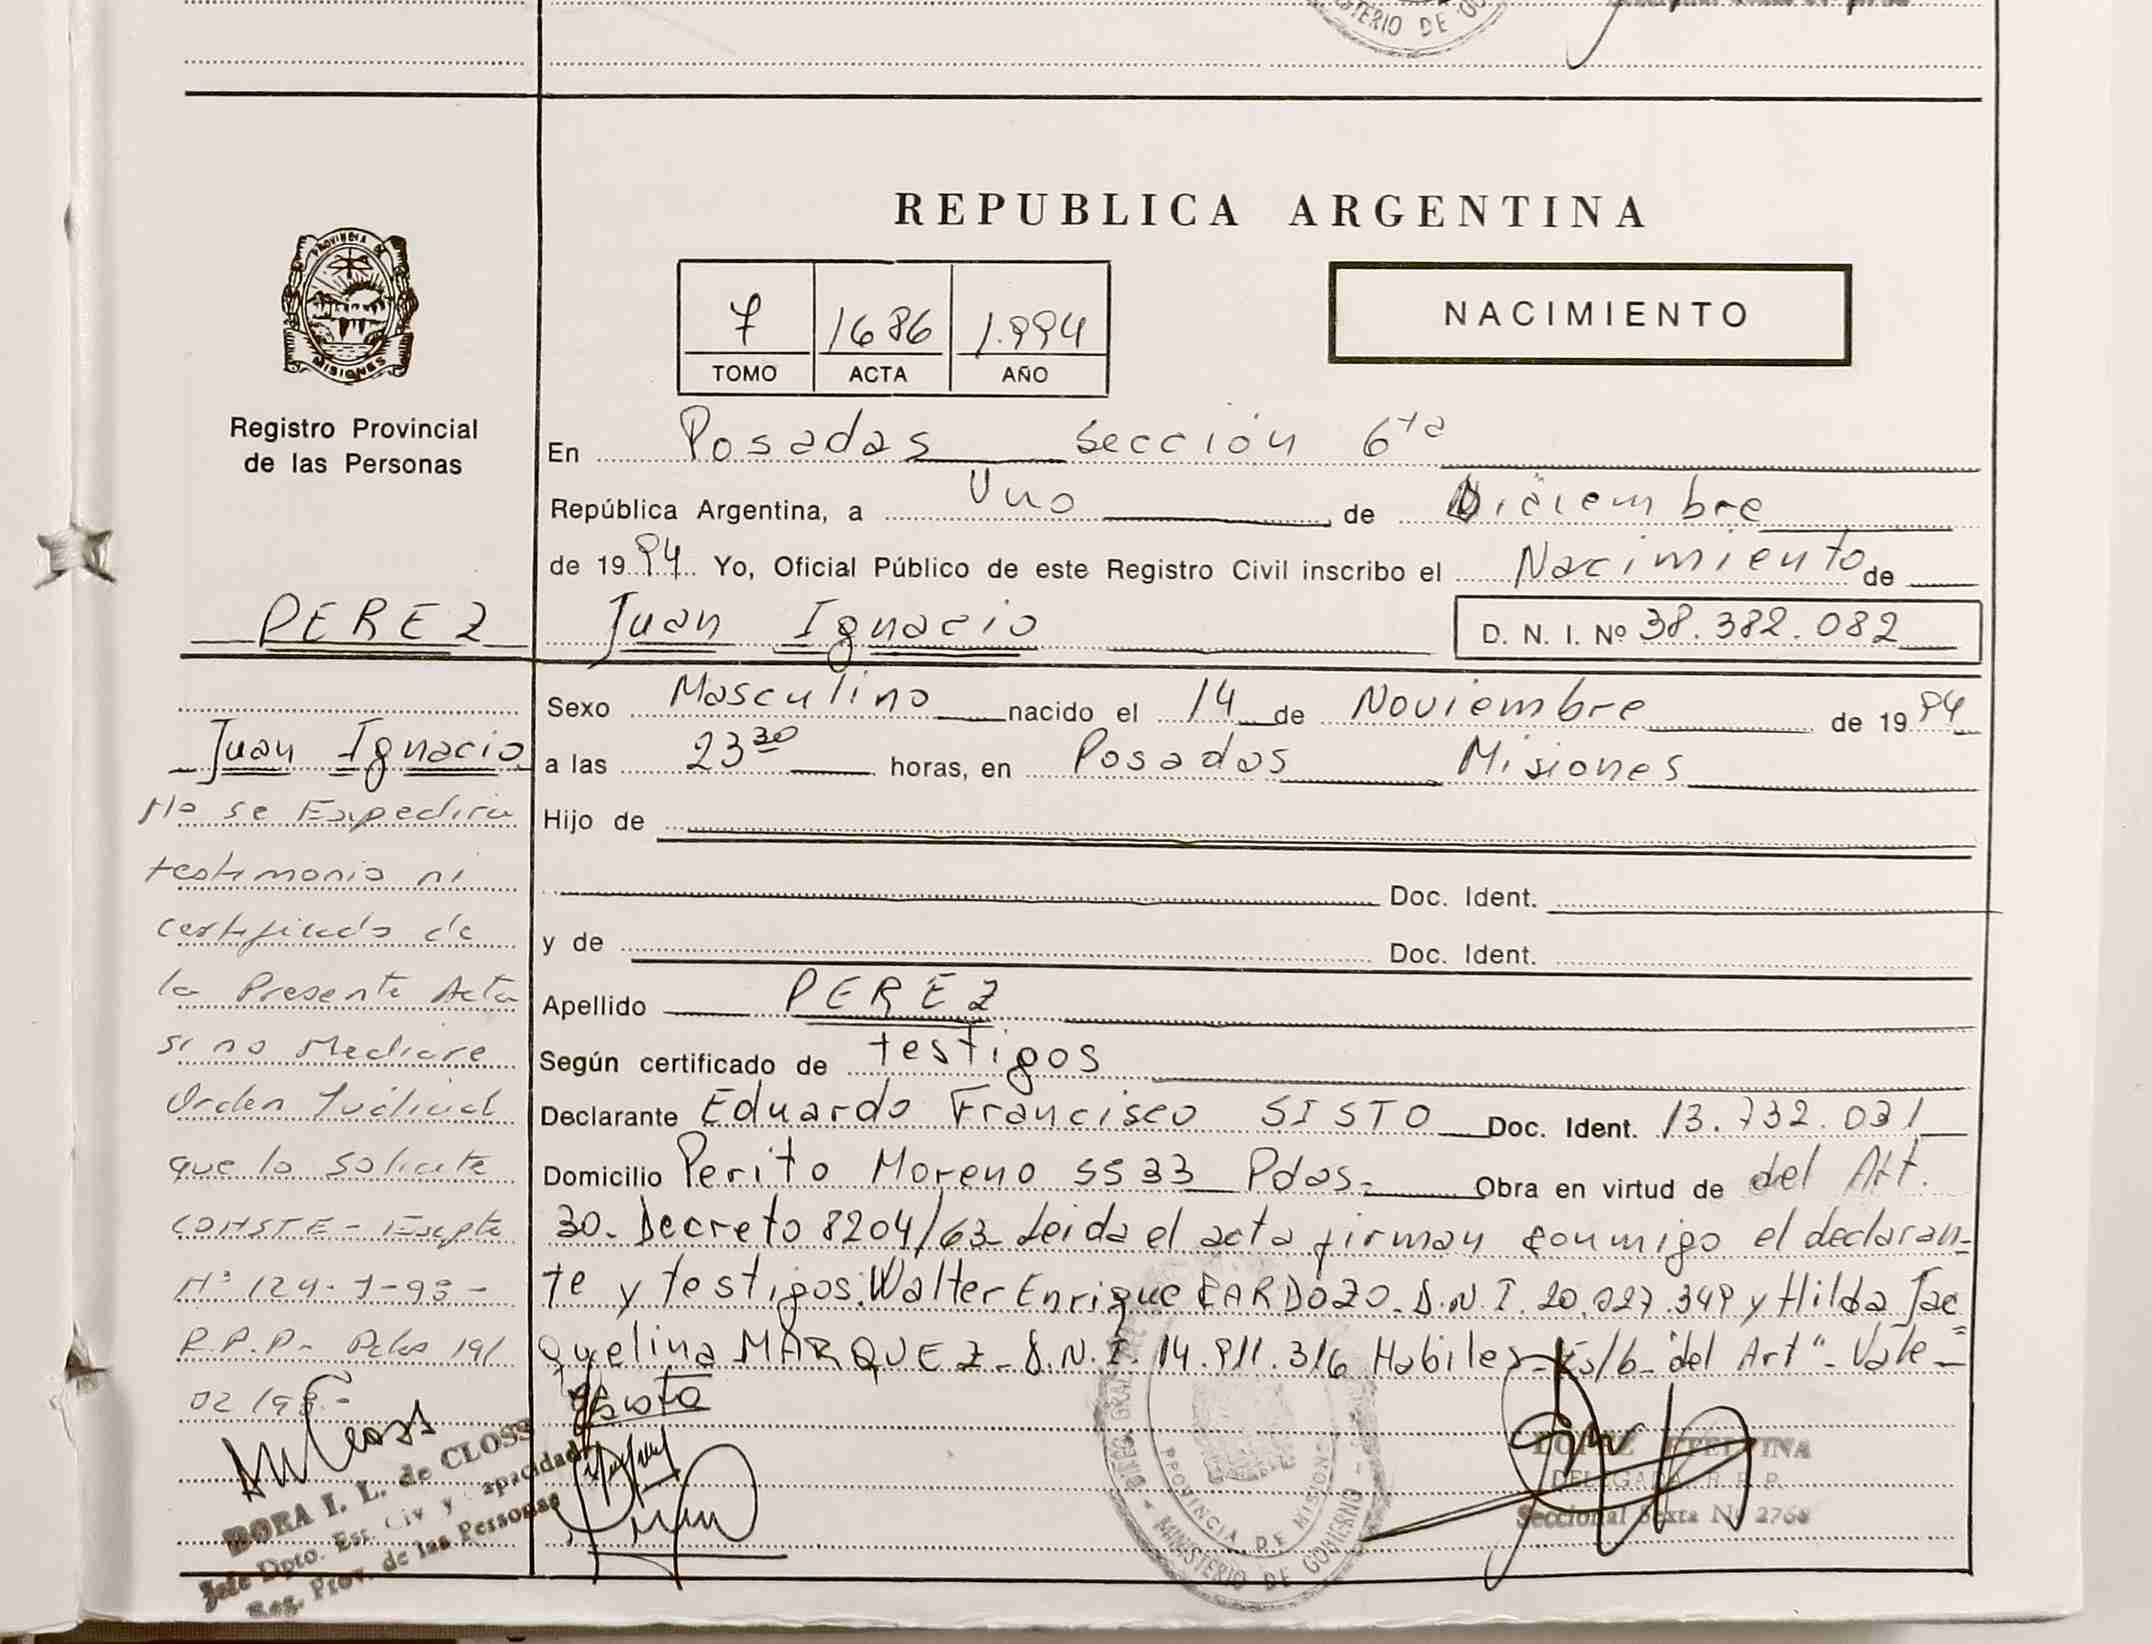 MINISTERIO DE GO
REPUBLICA ARGENTINA
PROVINCIA DE
MISIONES
7 1686 1.994
TOMO ACTA AÑO
NACIMIENTO
Registro Provincial
de las Personas
En Posadas Sección 6ta
República Argentina, a Uno de Diciembre
de 1994 Yo, Oficial Público de este Registro Civil inscribo el Nacimiento de
PEREZ Juan Ignacio D. N. I. Nº 38.382.082
Sexo Masculino nacido el 14 de Noviembre de 1994
a las 23 30 horas, en Posadas Misiones
Hijo de
Doc. Ident.
y de Doc. Ident.
Apellido PEREZ
Según certificado de testigos
Declarante Eduardo Francisco SISTO Doc. Ident. 13.732.031
Domicilio Perito Moreno 5533 Pdas- Obra en virtud de del Art.
30- Decreto 8204/63- Leida el acta firman conmigo el declaran-
te y testigos: Walter Enrique CARDOZO- D.N.I. 20.027.349 y Hilda Jac
quelina MARQUEZ- D.N.I. 14.911.316 Habiles- s/b- "del Art"- Vale-
Juan Ignacio
No se Expedira
testimonio ni
certificado de
la Presente Acta
si no Mediare
Orden Judicial
que lo solicite
CONSTE- Expte
Nº 124-7-95-
R.P.P- Pdas 19/
02/98-
DORA I. L. de CLOSS
Jefe Dpto. Est. Civ y Capacidad
Reg. Prov. de las Personas
PROVINCIA DE MISIONES
MINISTERIO DE GOBIERNO
DELEGADA R. P. P.
Seccional Sexta Nº 2768